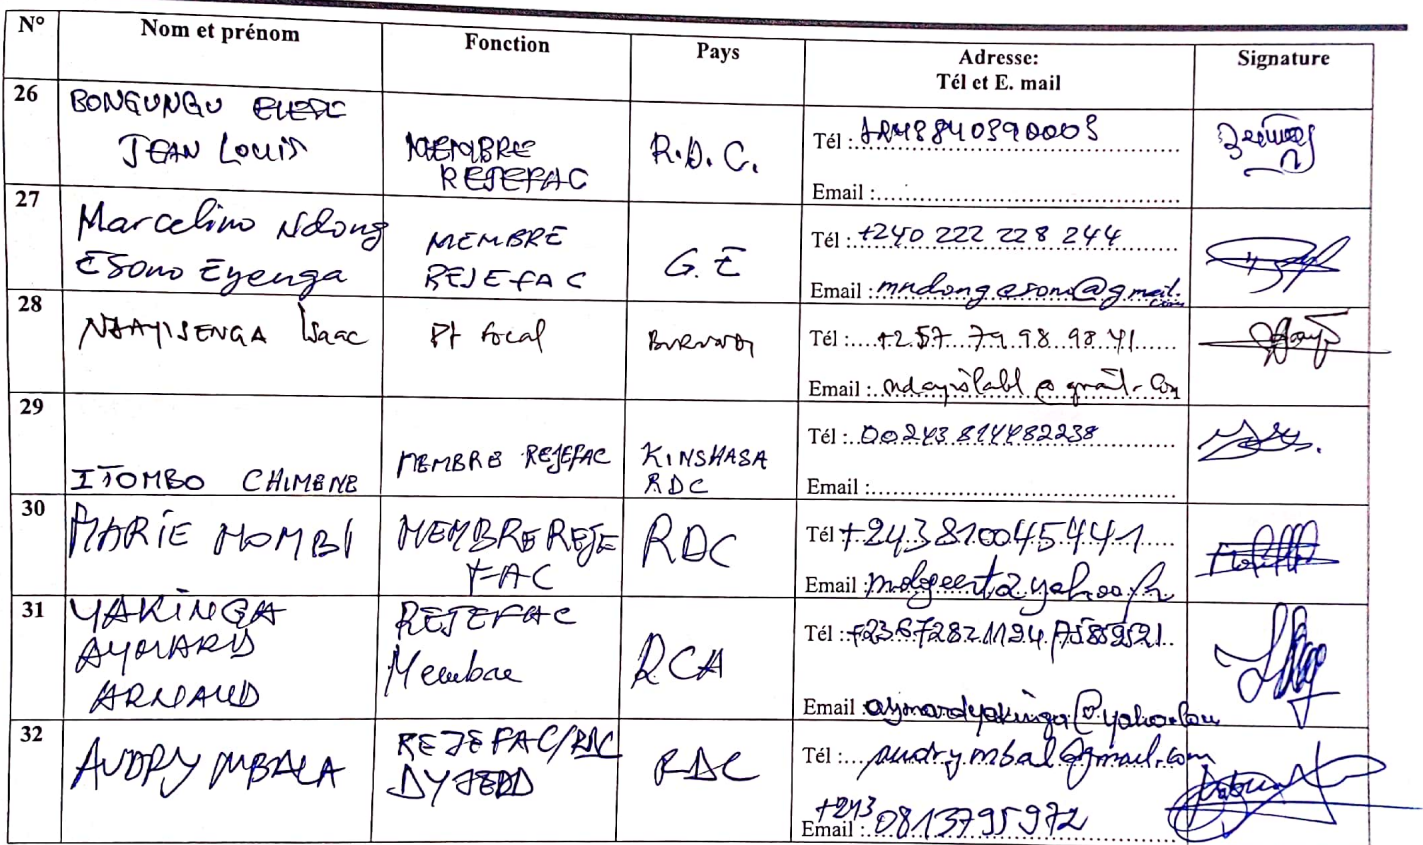 N° Nom et prénom Fonction Pays Adresse: Tél et E. mail Signature
26 BONGUNGU
JEAN LOUIS
MEMBRE
REJEFAC
R.D.C.
Tél :
Email :
27 Marcelino Ndong
Esono Eyenga
MEMBRE
REJEFAC
G.E
Tél : +240 222 228 244
Email : mndongesono@gmail.com
28 NDAYISENGA Isaac
Pt focal
BURUNDI
Tél : +257 79 98 98 41
Email :
29 ITOMBO CHIMENE
MEMBRE REJEFAC
KINSHASA
RDC
Tél : 00243 814482238
Email :
30 MARIE MOMBI
MEMBRE REJE
FAC
RDC
Tél +243810045441
Email :
31 YAKINGA
AYMARD
ARNAUD
REJEFAC
Membre
RCA
Tél :
Email : aymardyakinga@yahoo.
32 AUDRY MBALA
REJEFAC/RDC
RDC
Tél : audrymbal@gmail.com
+243
Email : 0813795972